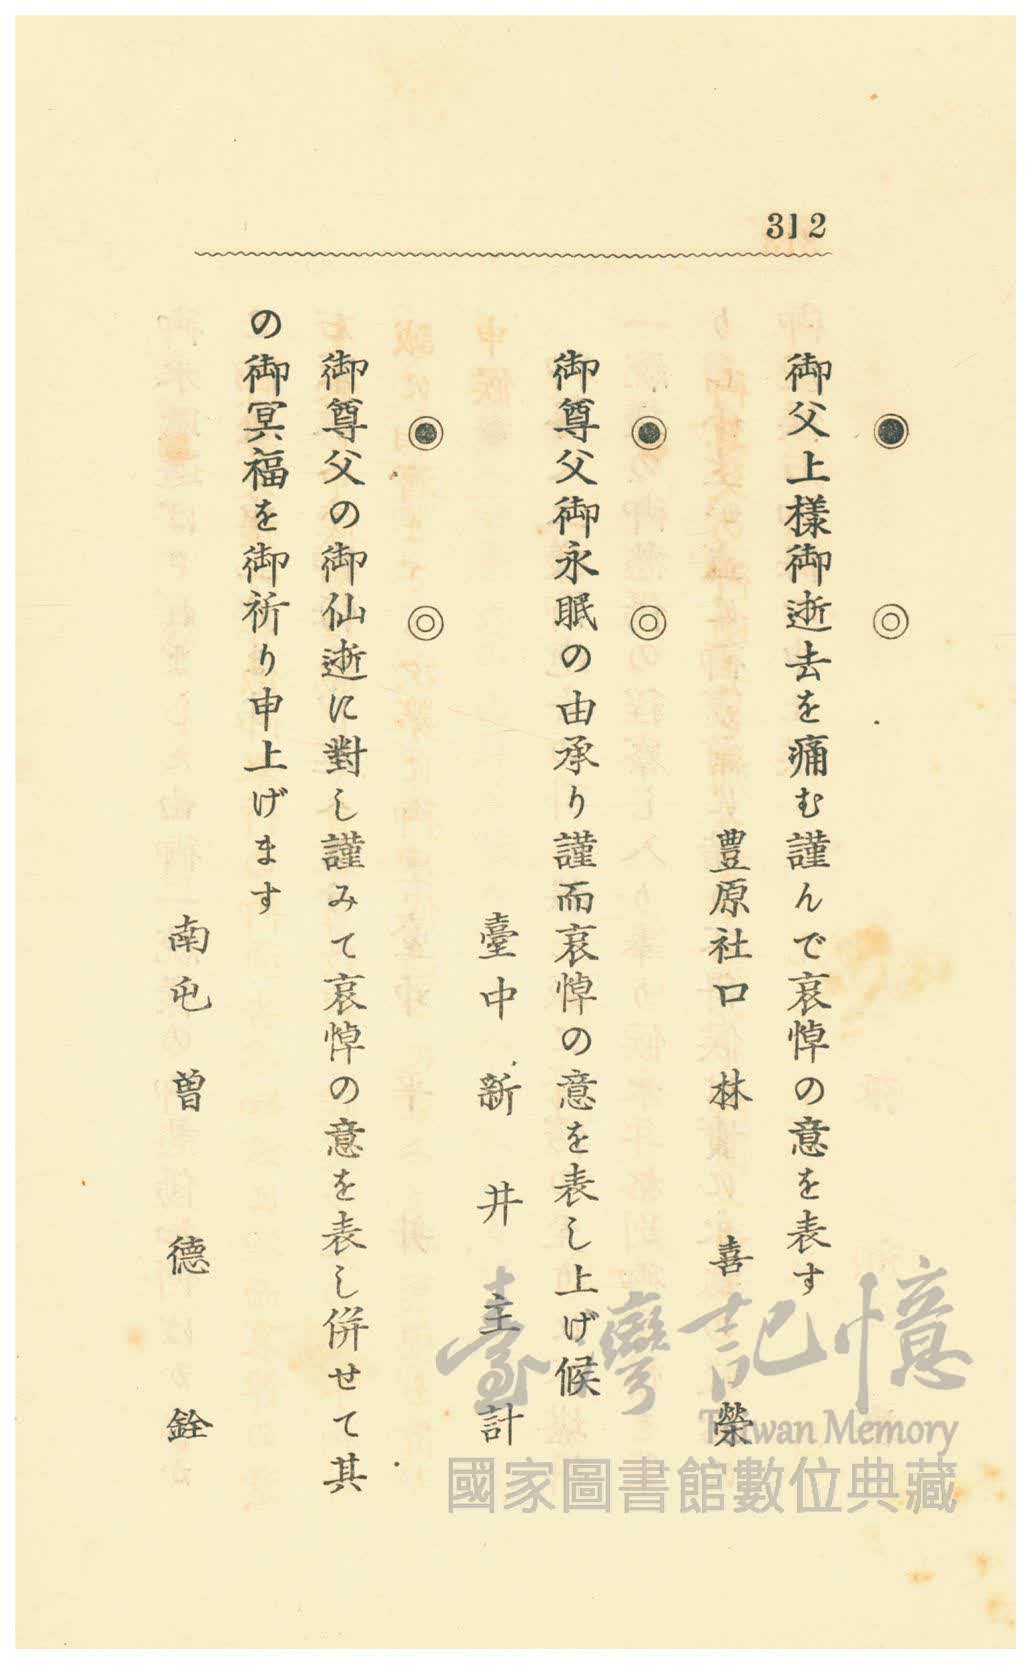 312
◉ ◎
御父上樣御逝去を痛む謹んで哀悼の意を表す
豊原社口 林 喜 榮
◉ ◎
御尊父御永眠の由承り謹而哀悼の意を表し上げ候
臺中 新井主計
◉ ◎
御尊父の御仙逝に對し謹みて哀悼の意を表し併せて其
の御冥福を御祈り申上げます
南屯 曽 德 銓
臺灣記憶
Taiwan Memory
國家圖書館數位典藏